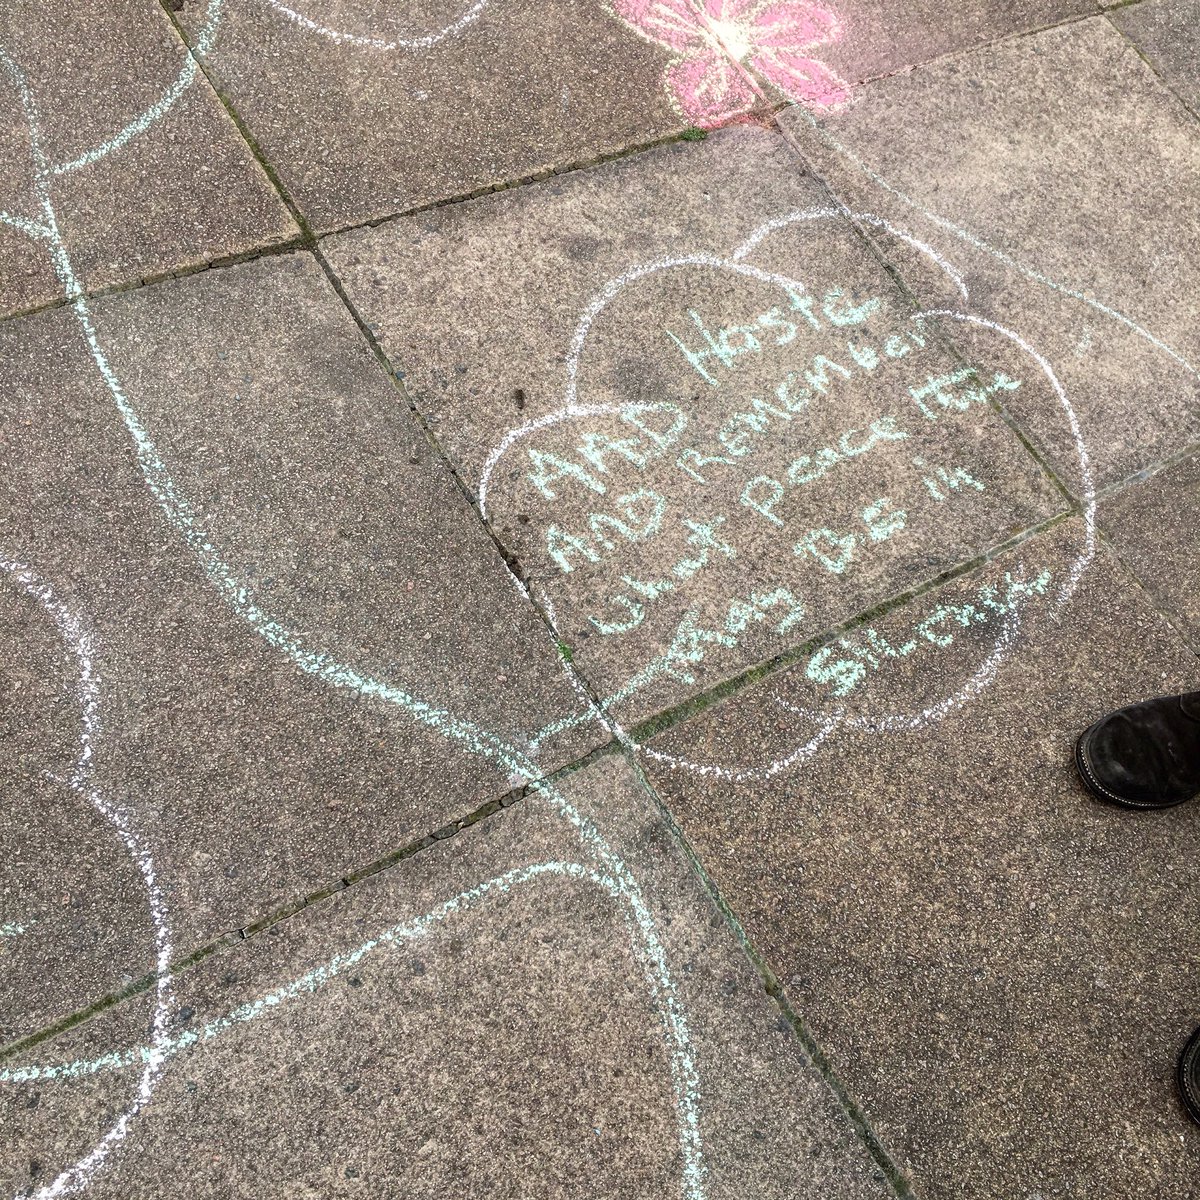 AMD Haste
AND Remember
what peace there
May Be in
Silence